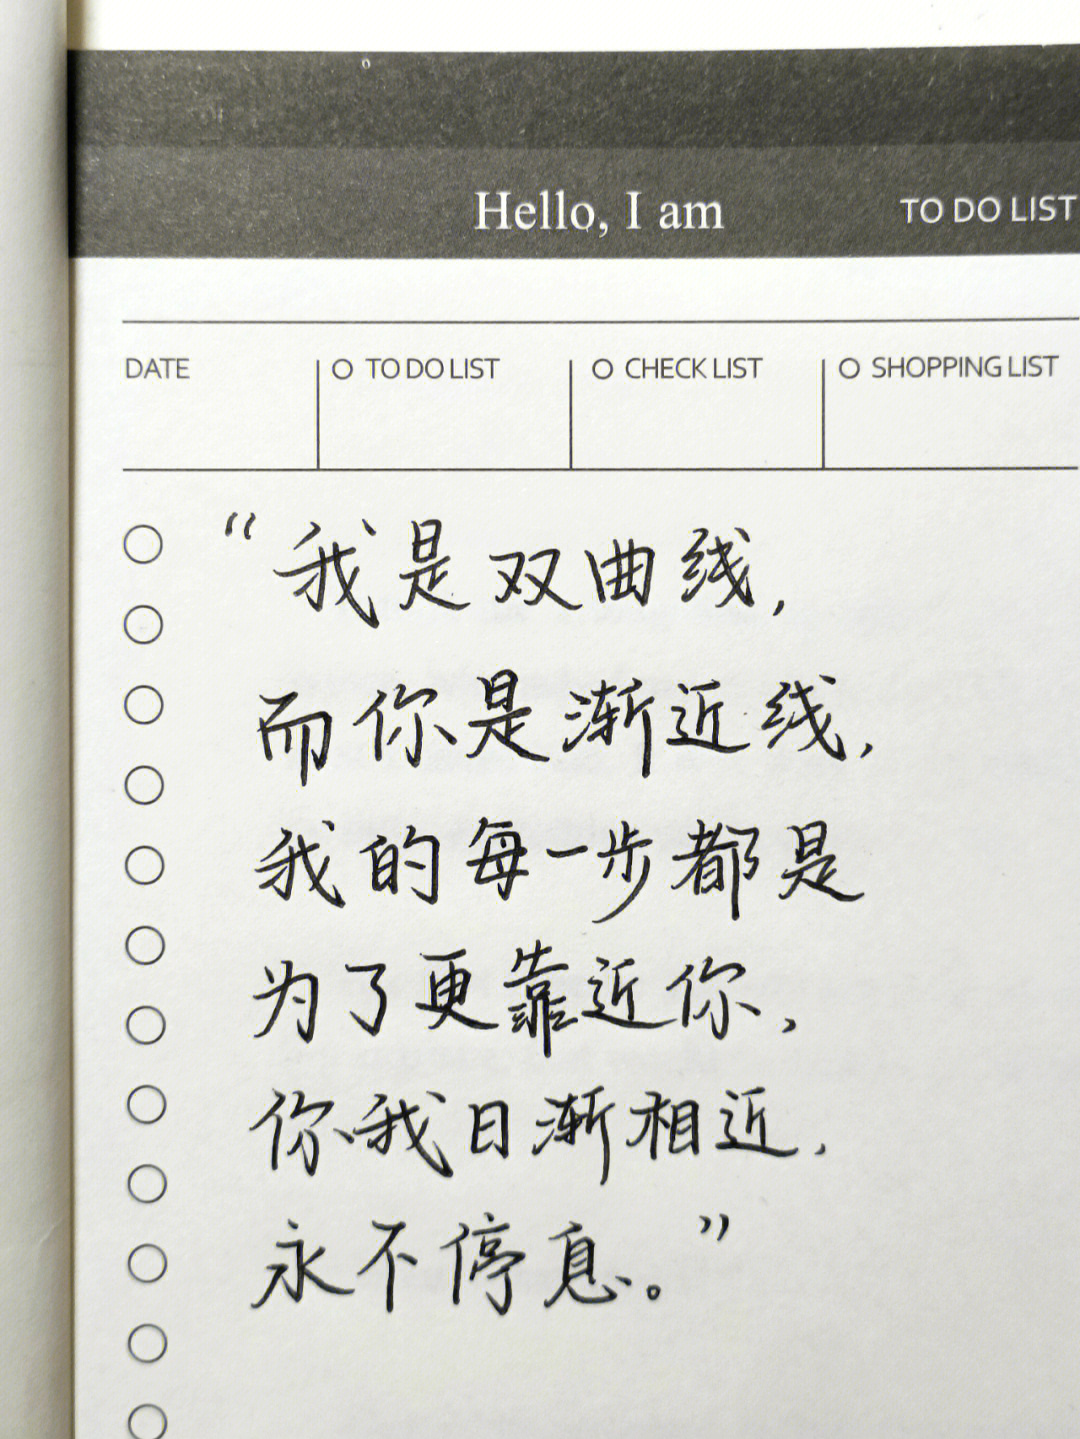 Hello, I am TO DO LIST
DATE ○ TO DO LIST ○ CHECK LIST ○ SHOPPING LIST
“我是双曲线，
而你是渐近线，
我的每一步都是
为了更靠近你，
你我日渐相近，
永不停息。”